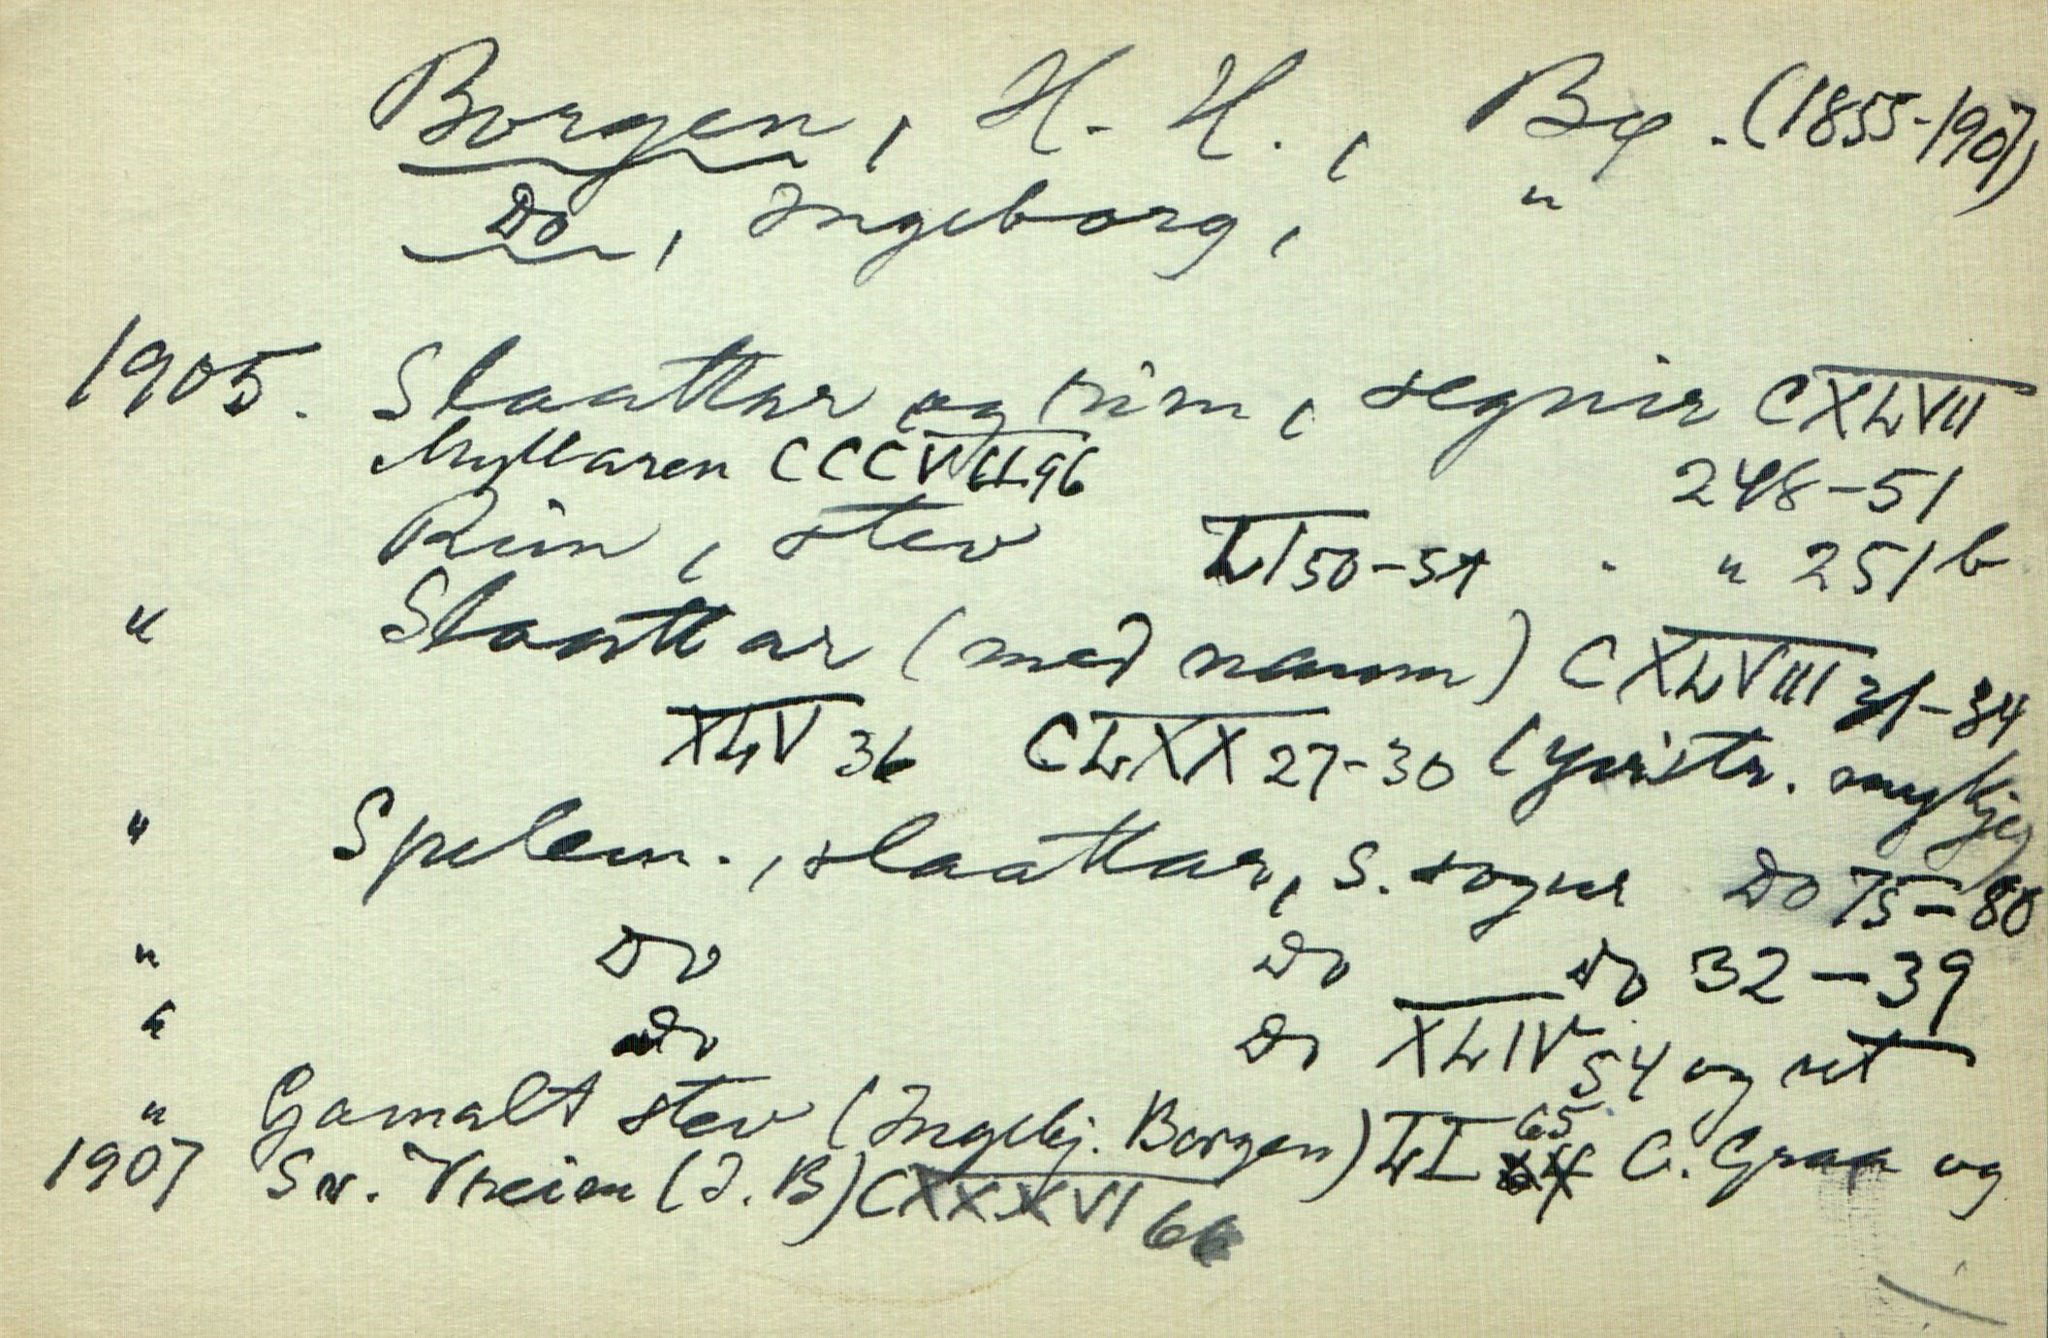 Borgen, H. H., Bø. (1855-1907)
Do, Ingeborg, "
1905. Slaattar og rim, segnir CXLVII
Myllaren CCCVIII 96 248-51
Rim, stev LI 50-51 . " 251b
" Slaattar (med namn) CXLVIII 31-34
XLV 36 CLXX 27-30 (yvistr. mykje)
" Spelem., slaattar, s. sogur Do 75-80
" Do Do Do 32-39
" Do Do XLIV 54 og ut
" Gamalt stev (Ingebj. Borgen) LI 65 C. Graa og
1907 Sv. Treim (I. B) CXXXVI 66